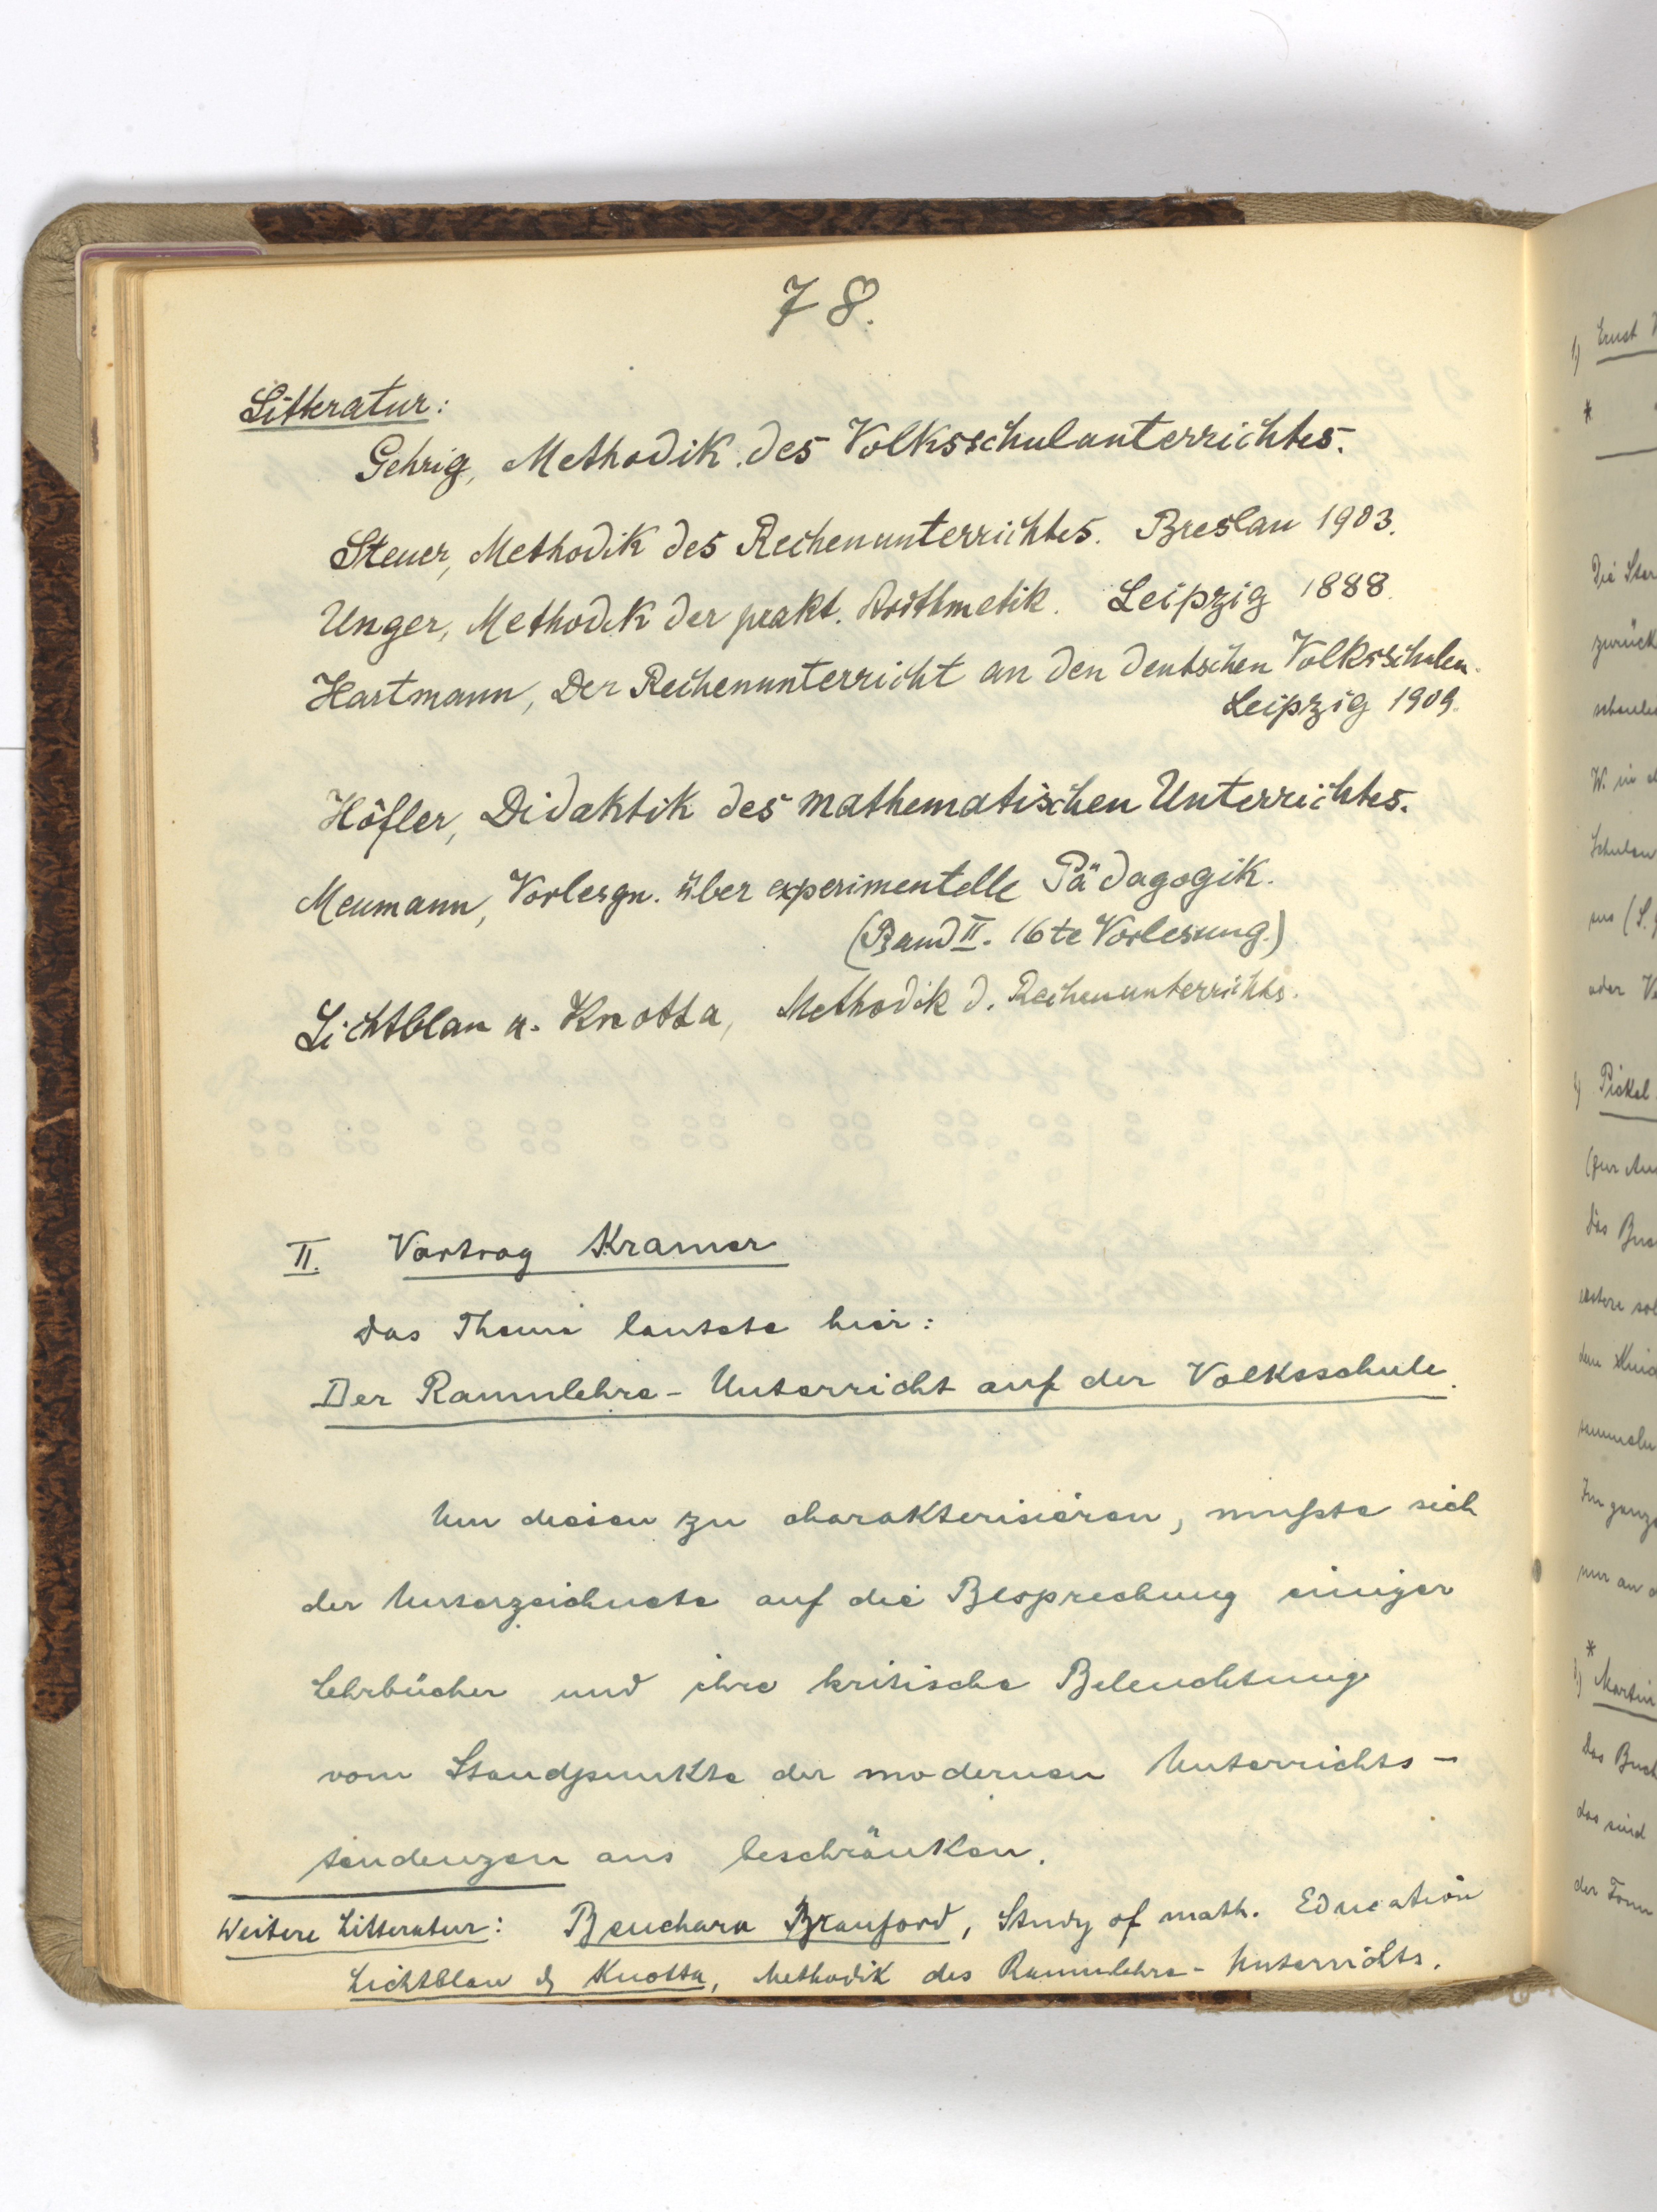 78.
Litteratur:
Gehrig, Methodik des Volksschulunterrichtes.
Steuer, Methodik des Rechenunterrichtes. Breslau 1903.
Unger, Methodik der prakt. Arithmetik. Leipzig 1888.
Hartmann, Der Rechenunterricht an den deutschen Volksschulen.
Leipzig 1909.
Höfler, Didaktik des mathematischen Unterrichtes.
Meumann, Vorlesgn. über experimentelle Pädagogik.
(Band II. 16te Vorlesung.)
Lichtblau u. Knotta, Methodik d. Rechenunterrichts.
II. Vortrag Kramer
Das Thema lautete hier:
Der Raumlehre-Unterricht auf der Volksschule.
Um diesen zu charakterisieren, mußte sich
der Unterzeichnete auf die Besprechung einiger
Lehrbücher und ihre kritische Beleuchtung
vom Standpunkte der modernen Unterrichts-
tendenzen aus beschränken.
Weitere Litteratur: Benchara Branford, Study of math. Education
Lichtblau & Knotta, Methodik des Raumlehre-Unterrichts.
1) Ernst
*
Die
zurück
W. in
Schulen
oder
1) Pickel
Das
Im ganze
nur an
*
1) Martin
Das Buch
das sind
der